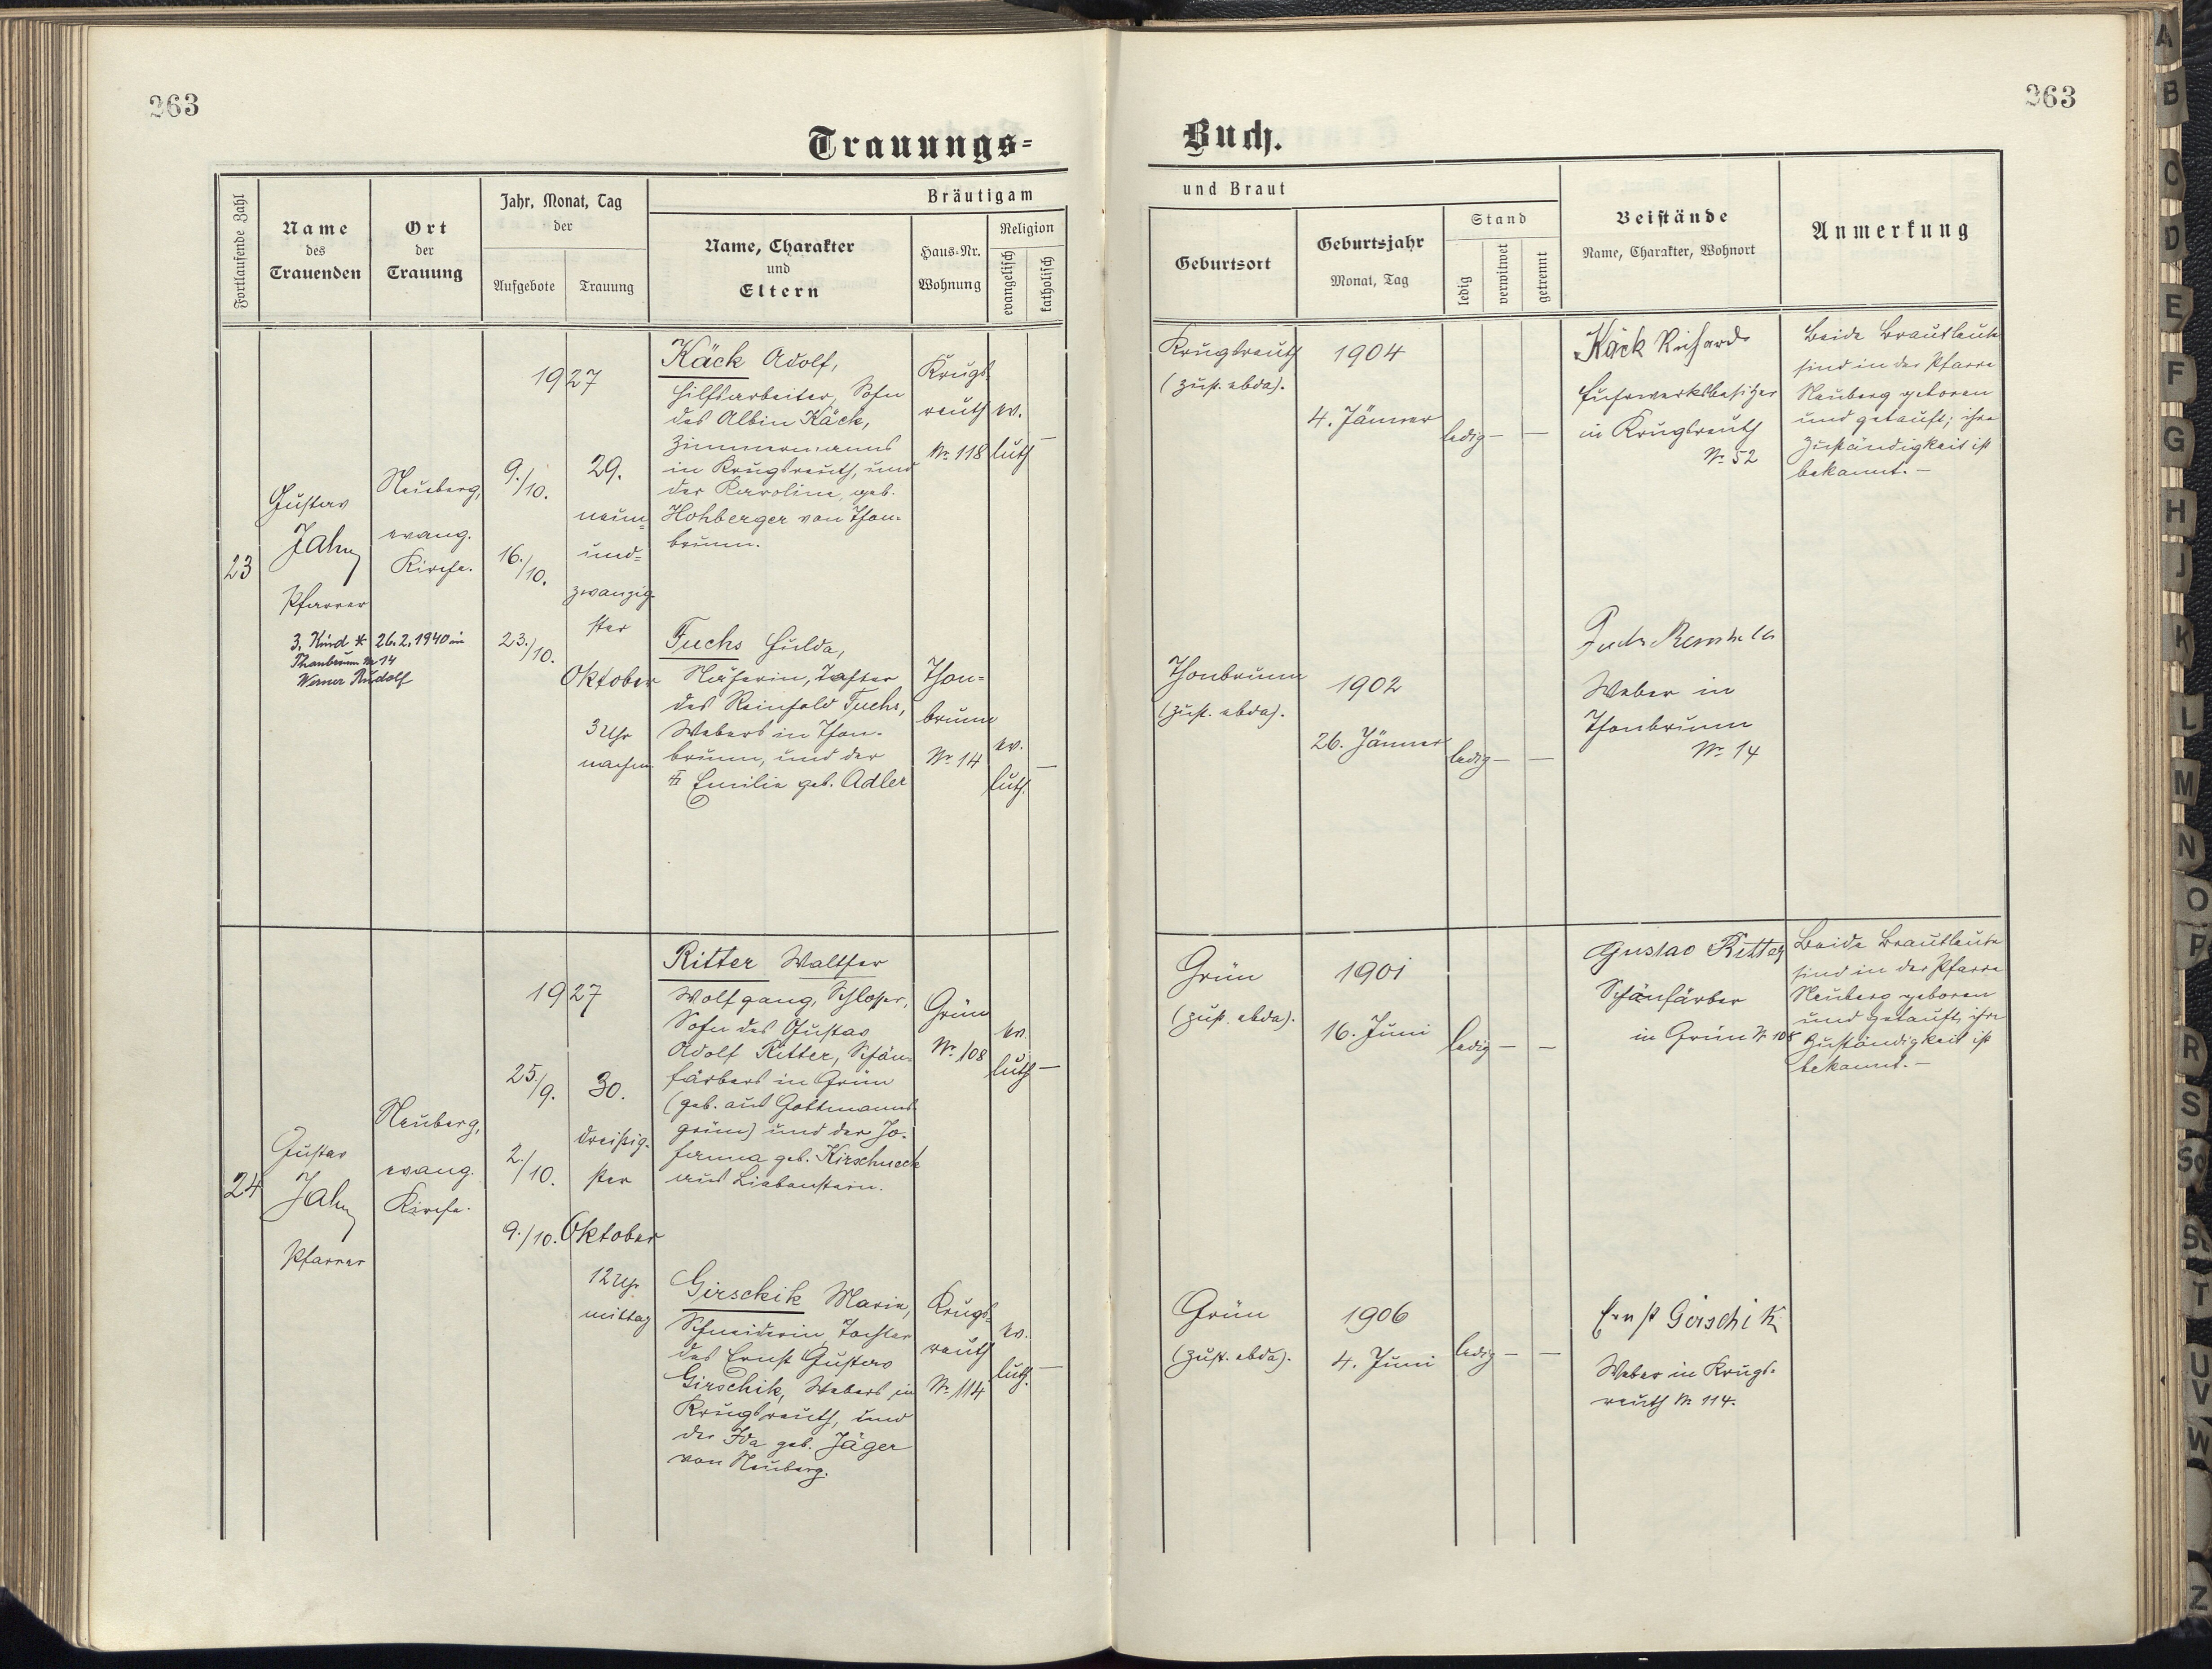 263
263
Trauungs=
Buch.
Fortlaufende Zahl
Name
des
Trauenden
Ort
der
Trauung
Jahr, Monat, Tag
der
Aufgebote
Trauung
Bräutigam
Name, Charakter
und
Eltern
Haus-Nr.
Wohnung
Religion
evangelisch
katholisch
und Braut
Geburtsort
Geburtsjahr
Monat, Tag
Stand
ledig
verwitwet
getrennt
Beistände
Name, Charakter, Wohnort
Anmerkung
23
Gustav
Jahn
Pfarrer
3. Kind * 26.2.1940 in
Thonbrunn Nr 14
Werner Rudolf
Neuberg,
evang.
Kirche.
1927
9./10.
16./10.
23./10.
29.
neun=
und=
zwanzig-
ster
Oktober
3 Uhr
nachm.
Käck Adolf,
Hilfsarbeiter, Sohn
des Albin Käck,
Zimmermanns
in Krugsreuth, und
der Karoline, geb.
Hohberger von Thon-
brunn.
Krugs-
reuth
Nr. 118
ev.
luth
—
Fuchs Hulda,
Näherin, Tochter
des Reinhold Fuchs,
Webers in Thon-
brunn, und der
Emilie geb. Adler
Thon=
brunn
Nr 14
ev.
luth.
—
Krugsreuth
(zust. ebda).
1904
4. Jänner
ledig — —
Käck Richard
Fuhrwerksbesitzer
in Krugsreuth
Nr. 52
Beide Brautleute
sind in der Pfarre
Neuberg geboren
und getauft; ihre
Zuständigkeit ist
bekannt. —
Thonbrunn
(zust. ebda).
1902
26. Jänner
ledig — —
Fuchs
Weber in
Thonbrunn
Nr. 14
24
Gustav
Jahn
Pfarrer
Neuberg,
evang.
Kirche.
1927
25./9.
2./10.
9./10.
30.
dreißig-
ster
Oktober
12 Uhr
mittag
Ritter Walther
Wolfgang, Schlosser,
Sohn des Gustav
Adolf Ritter, Schön-
färbers in Grün
(geb. aus Gottmanns-
grün) und der Jo-
hanna geb. Kirschneck
aus Liebenstein.
Grün
Nr. 108
ev.
luth
—
Girschik Marie,
Schneiderin, Tochter
des Ernst Gustav
Girschik, Webers in
Krugsreuth, und
der Ida geb. Jäger
von Neuberg.
Krugs-
reuth
Nr. 114
ev.
luth.
—
Grün
(zust. ebda).
1901
16. Juni
ledig — —
Gustav Ritter
Schönfärber
in Grün Nr 108
Beide Brautleute
sind in der Pfarre
Neuberg geboren
und getauft, ihre
Zuständigkeit ist
bekannt. —
Grün
(zust. ebda).
1906
4. Juni
ledig — —
Ernst Girschik
Weber in Krugs-
reuth Nr. 114.
A
B
C
D
E
F
G
H
J
K
L
M
N
O
P
R
S
T
U
V
W
Z